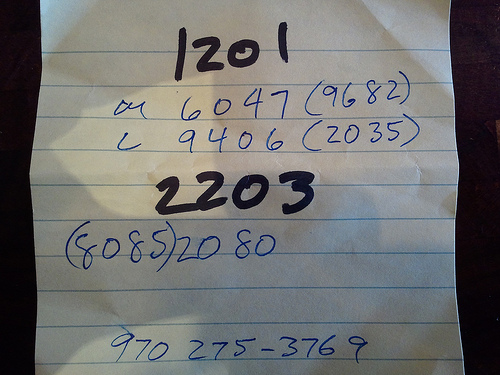 1201
m 6047 (9682)
L 9406 (2035)
2203
(8085) 2080
970 275-3769